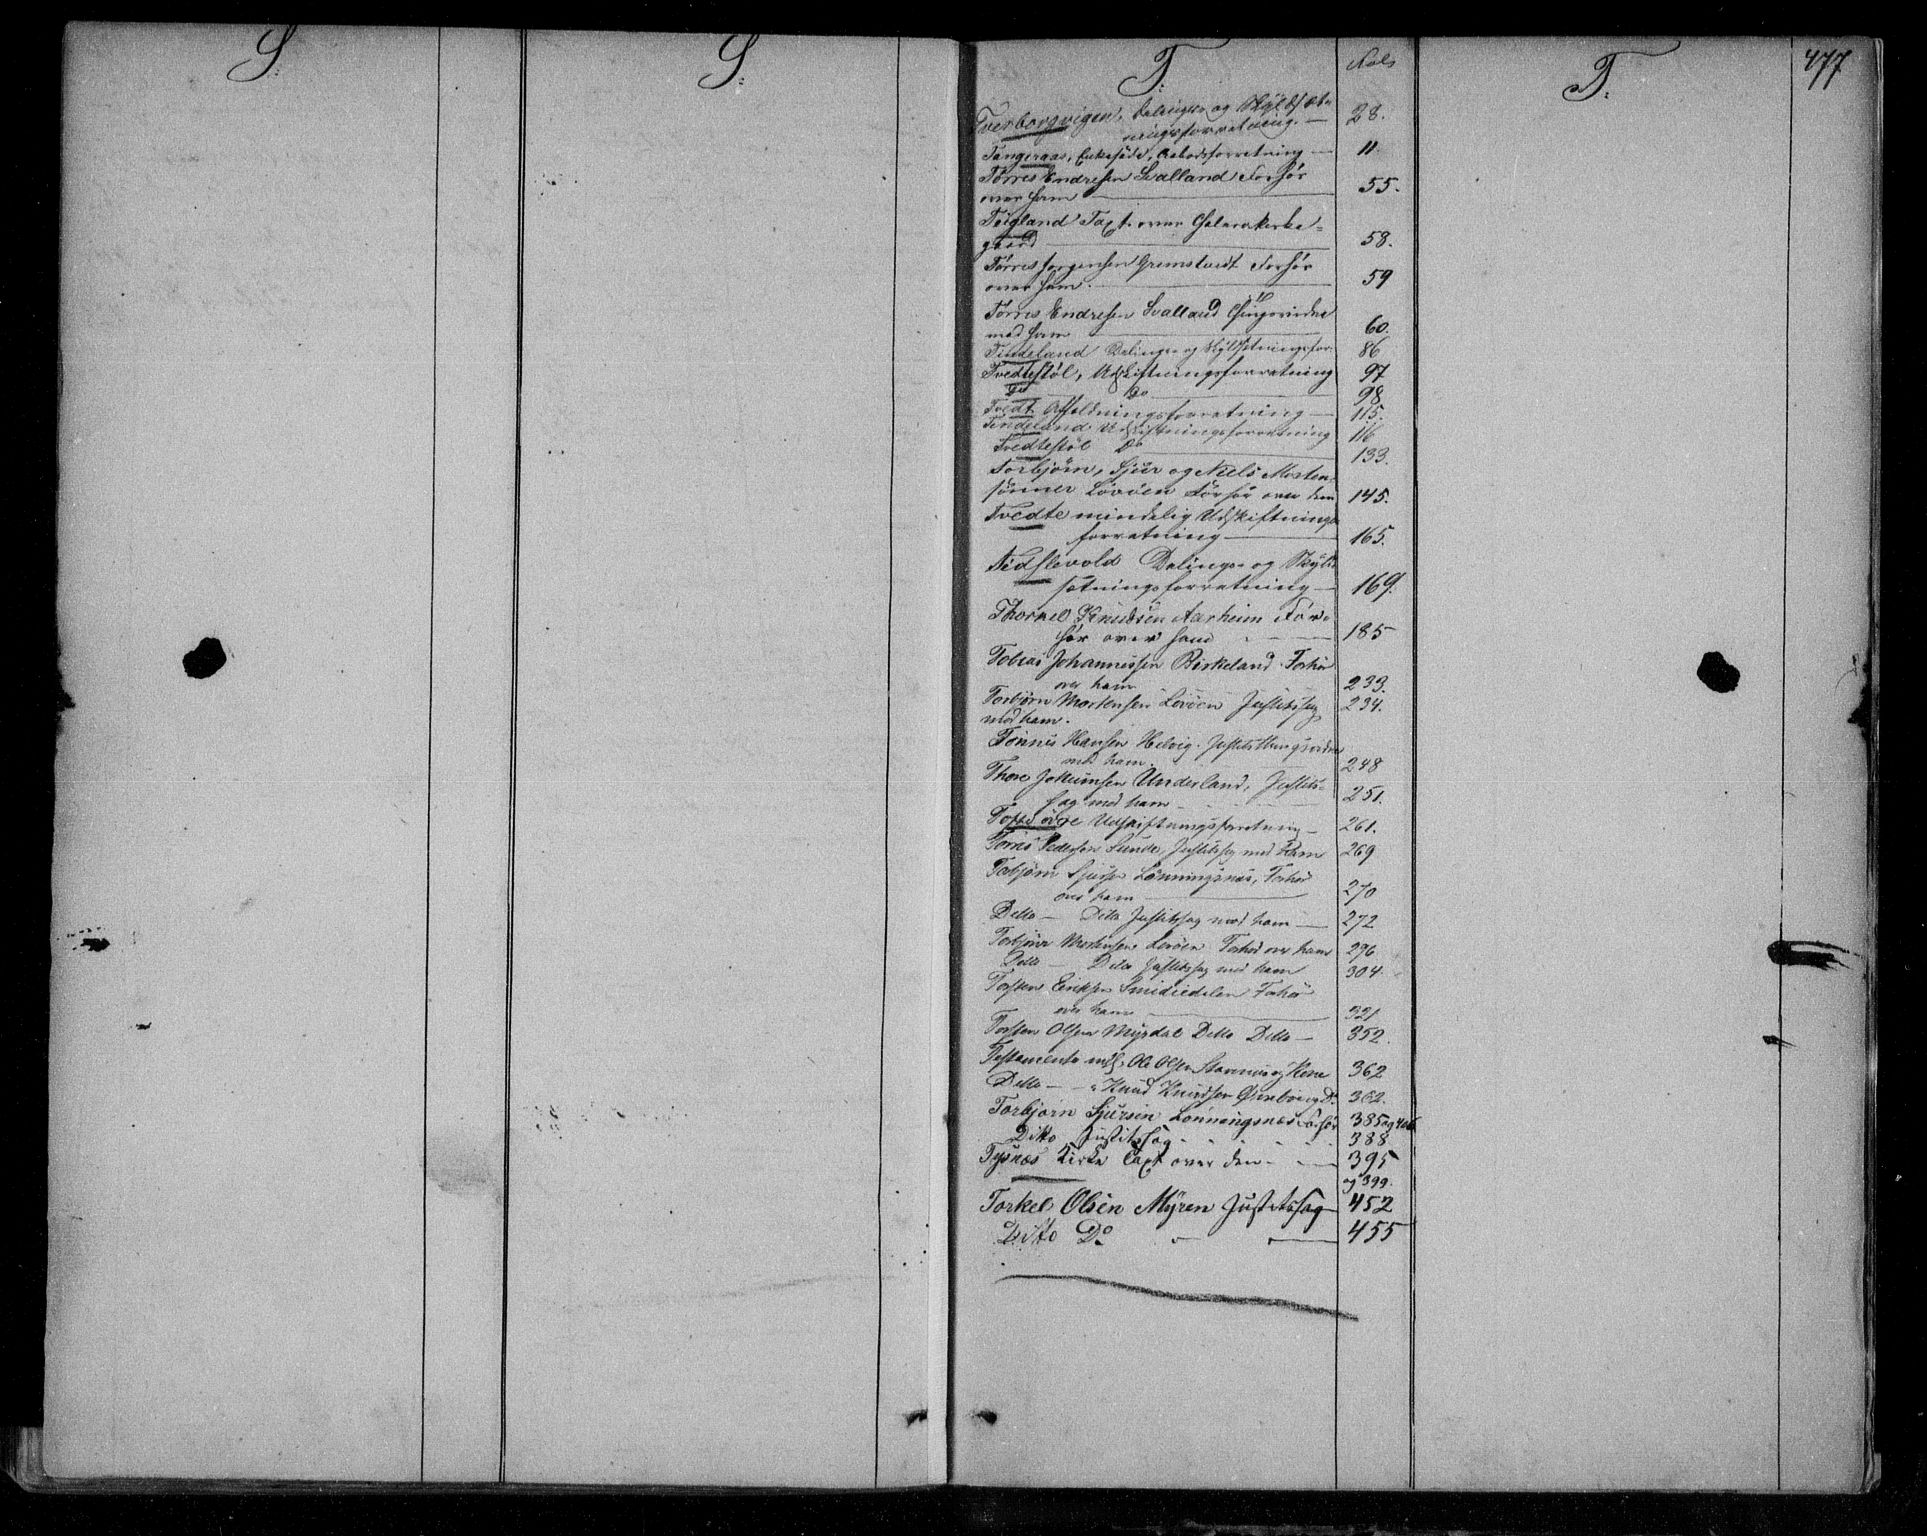 S:
S:
T:
Fols
T:
477
Tverborgvigen, Delings- og Skyldsæt-
ningsforretning. — 28.
Tangeraas, Enkesæde, Aabodsforretning — 11.
Tørres Endresen Svalland Forhør
over ham — 55.
Teigland Taxt over Cholerakirke-
gaard — 58.
Tørres Jørgensen Grimstvedt Forhør
over ham. — 59
Tørres Endresen Svalland Thingsvidne
med ham — 60.
Tindeland Delings- og Skyldsætningsfor: 86
Tvedtestøl, Udskiftningsforretning 97
Do Do — 98
Tvedt Affældningsforretning — 115.
Tindeland Udskiftningsforretning 116
Tvedtestøl Do — 133.
Torbjørn, Sjur og Niels Morten-
sønner Lovøen Forhør over dem 145.
Tvedte mindelig Udskiftnings-
forretning — 165.
Tidslevold Delings- og Skyld-
sætningsforretning — 169.
Thorkel Knudsen Aarheim For-
hør over ham — 185
Tobias Johannessen Birkeland. Forhør
over ham 233.
Torbjørn Mortensen Lovøen Justitssag 234.
mod ham.
Tønnis Hansen Helvig. Justitsthingsvidne
med ham. 248
Thore Jokumsen Underland, Justits-
sag mod ham — 251.
Tofte øvre Udskiftningsforretning — 261.
Tørris Pedersen Lunde, Justitssag mod ham 269
Torbjørn Sjursen Lønningsnæs, Forhør
over ham — 270
Ditto — Ditto Justitssag mod ham — 272
Torbjørn Mortensen Lovøen Forhør over ham 296
Ditto — Ditto Justitssag mod ham 304.
Torsten Eriksen Smidiedalen Forhør
over ham — 321
Torsten Olsen Myrdal Ditto Ditto — 352.
Testamente mell: Ole Olsen og Kone 362
Ditto — " Knud Knudsen og Do 362.
Torbjørn Sjursen Lønningsnæs Forhør 385 og 406
Ditto Justitssag — 388
Tysnæs Kirke Taxt over den — 395
og 399.
Torkel Olsen Myren Justitssag — 452
Ditto Do — 455